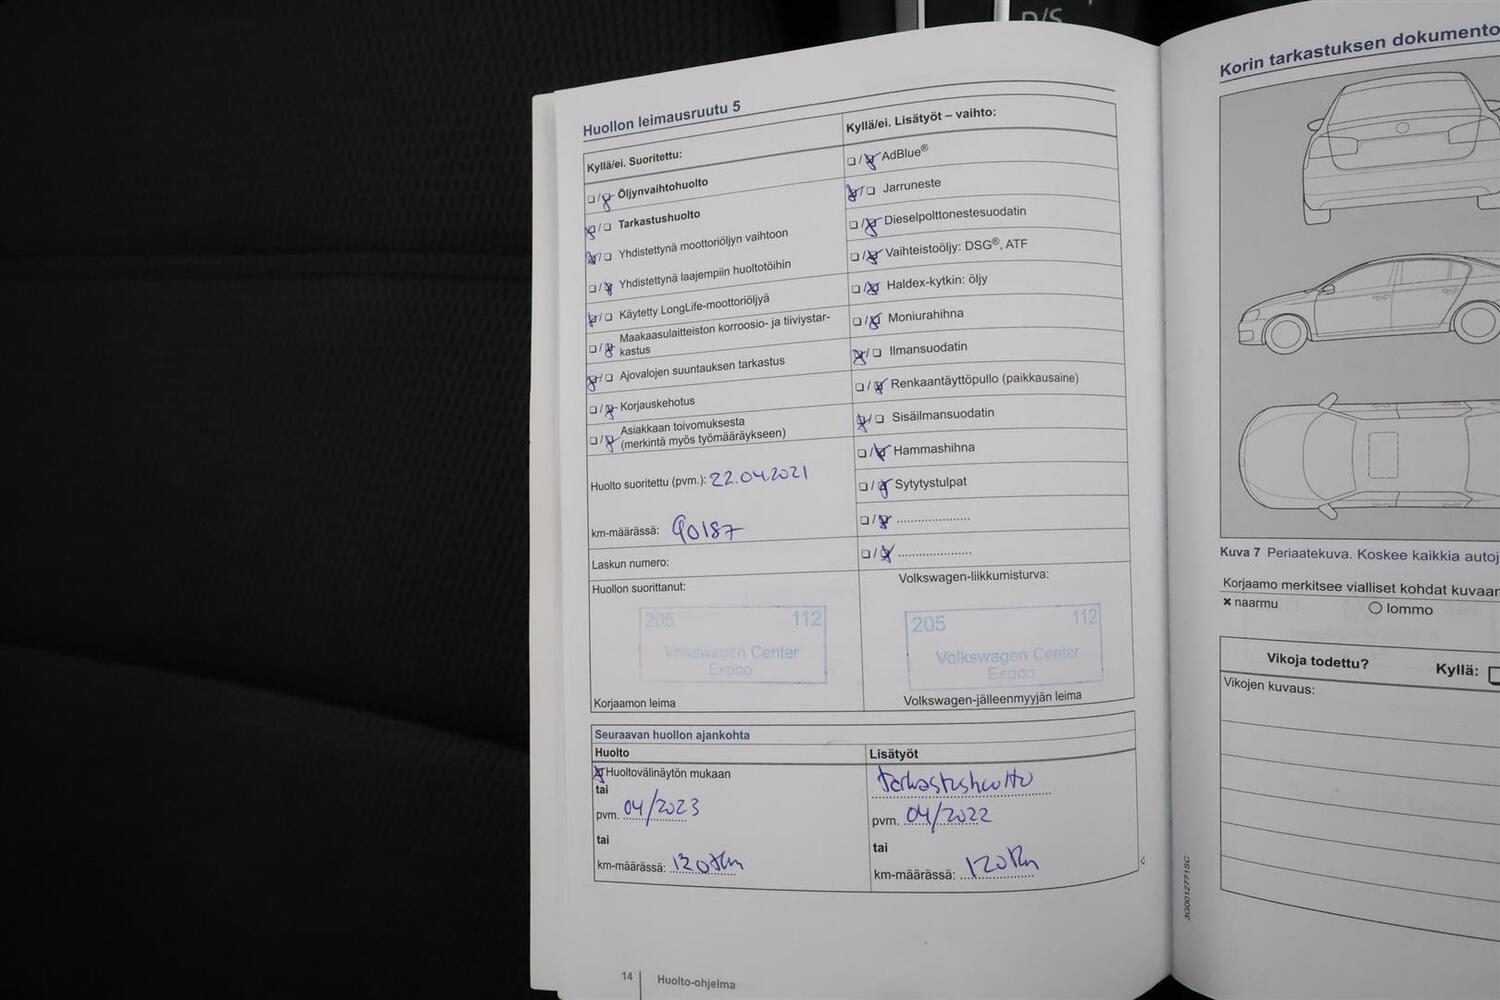 D/S
Huollon leimausruutu 5
Kyllä/ei. Suoritettu:
Öljynvaihtohuolto
Tarkastushuolto
Yhdistettynä moottoriöljyn vaihtoon
Yhdistettynä laajempiin huoltotöihin
Käytetty LongLife-moottoriöljyä
Maakaasulaitteiston korroosio- ja tiiviystar-
kastus
Ajovalojen suuntauksen tarkastus
Korjauskehotus
Asiakkaan toivomuksesta
(merkintä myös työmääräykseen)
Huolto suoritettu (pvm.): 22.04.2021
km-määrässä: 90187
Laskun numero:
Huollon suorittanut:
205 112
Volkswagen Center
Espoo
Korjaamon leima
Kyllä/ei. Lisätyöt – vaihto:
AdBlue®
Jarruneste
Dieselpolttonestesuodatin
Vaihteistoöljy: DSG®, ATF
Haldex-kytkin: öljy
Moniurahihna
Ilmansuodatin
Renkaantäyttöpullo (paikkausaine)
Sisäilmansuodatin
Hammashihna
Sytytystulpat
Volkswagen-liikkumisturva:
205 112
Volkswagen Center
Espoo
Volkswagen-jälleenmyyjän leima
Seuraavan huollon ajankohta
Huolto
Huoltovälinäytön mukaan
tai
pvm. 04/2023
tai
km-määrässä: 120tkm
Lisätyöt
Tarkastushuolto
pvm. 04/2022
tai
km-määrässä:
14 Huolto-ohjelma
Korin tarkastuksen dokumento
Kuva 7 Periaatekuva. Koskee kaikkia autoj
Korjaamo merkitsee vialliset kohdat kuvaan
× naarmu ○ lommo
Vikoja todettu? Kyllä:
Vikojen kuvaus:
3G0012771SC